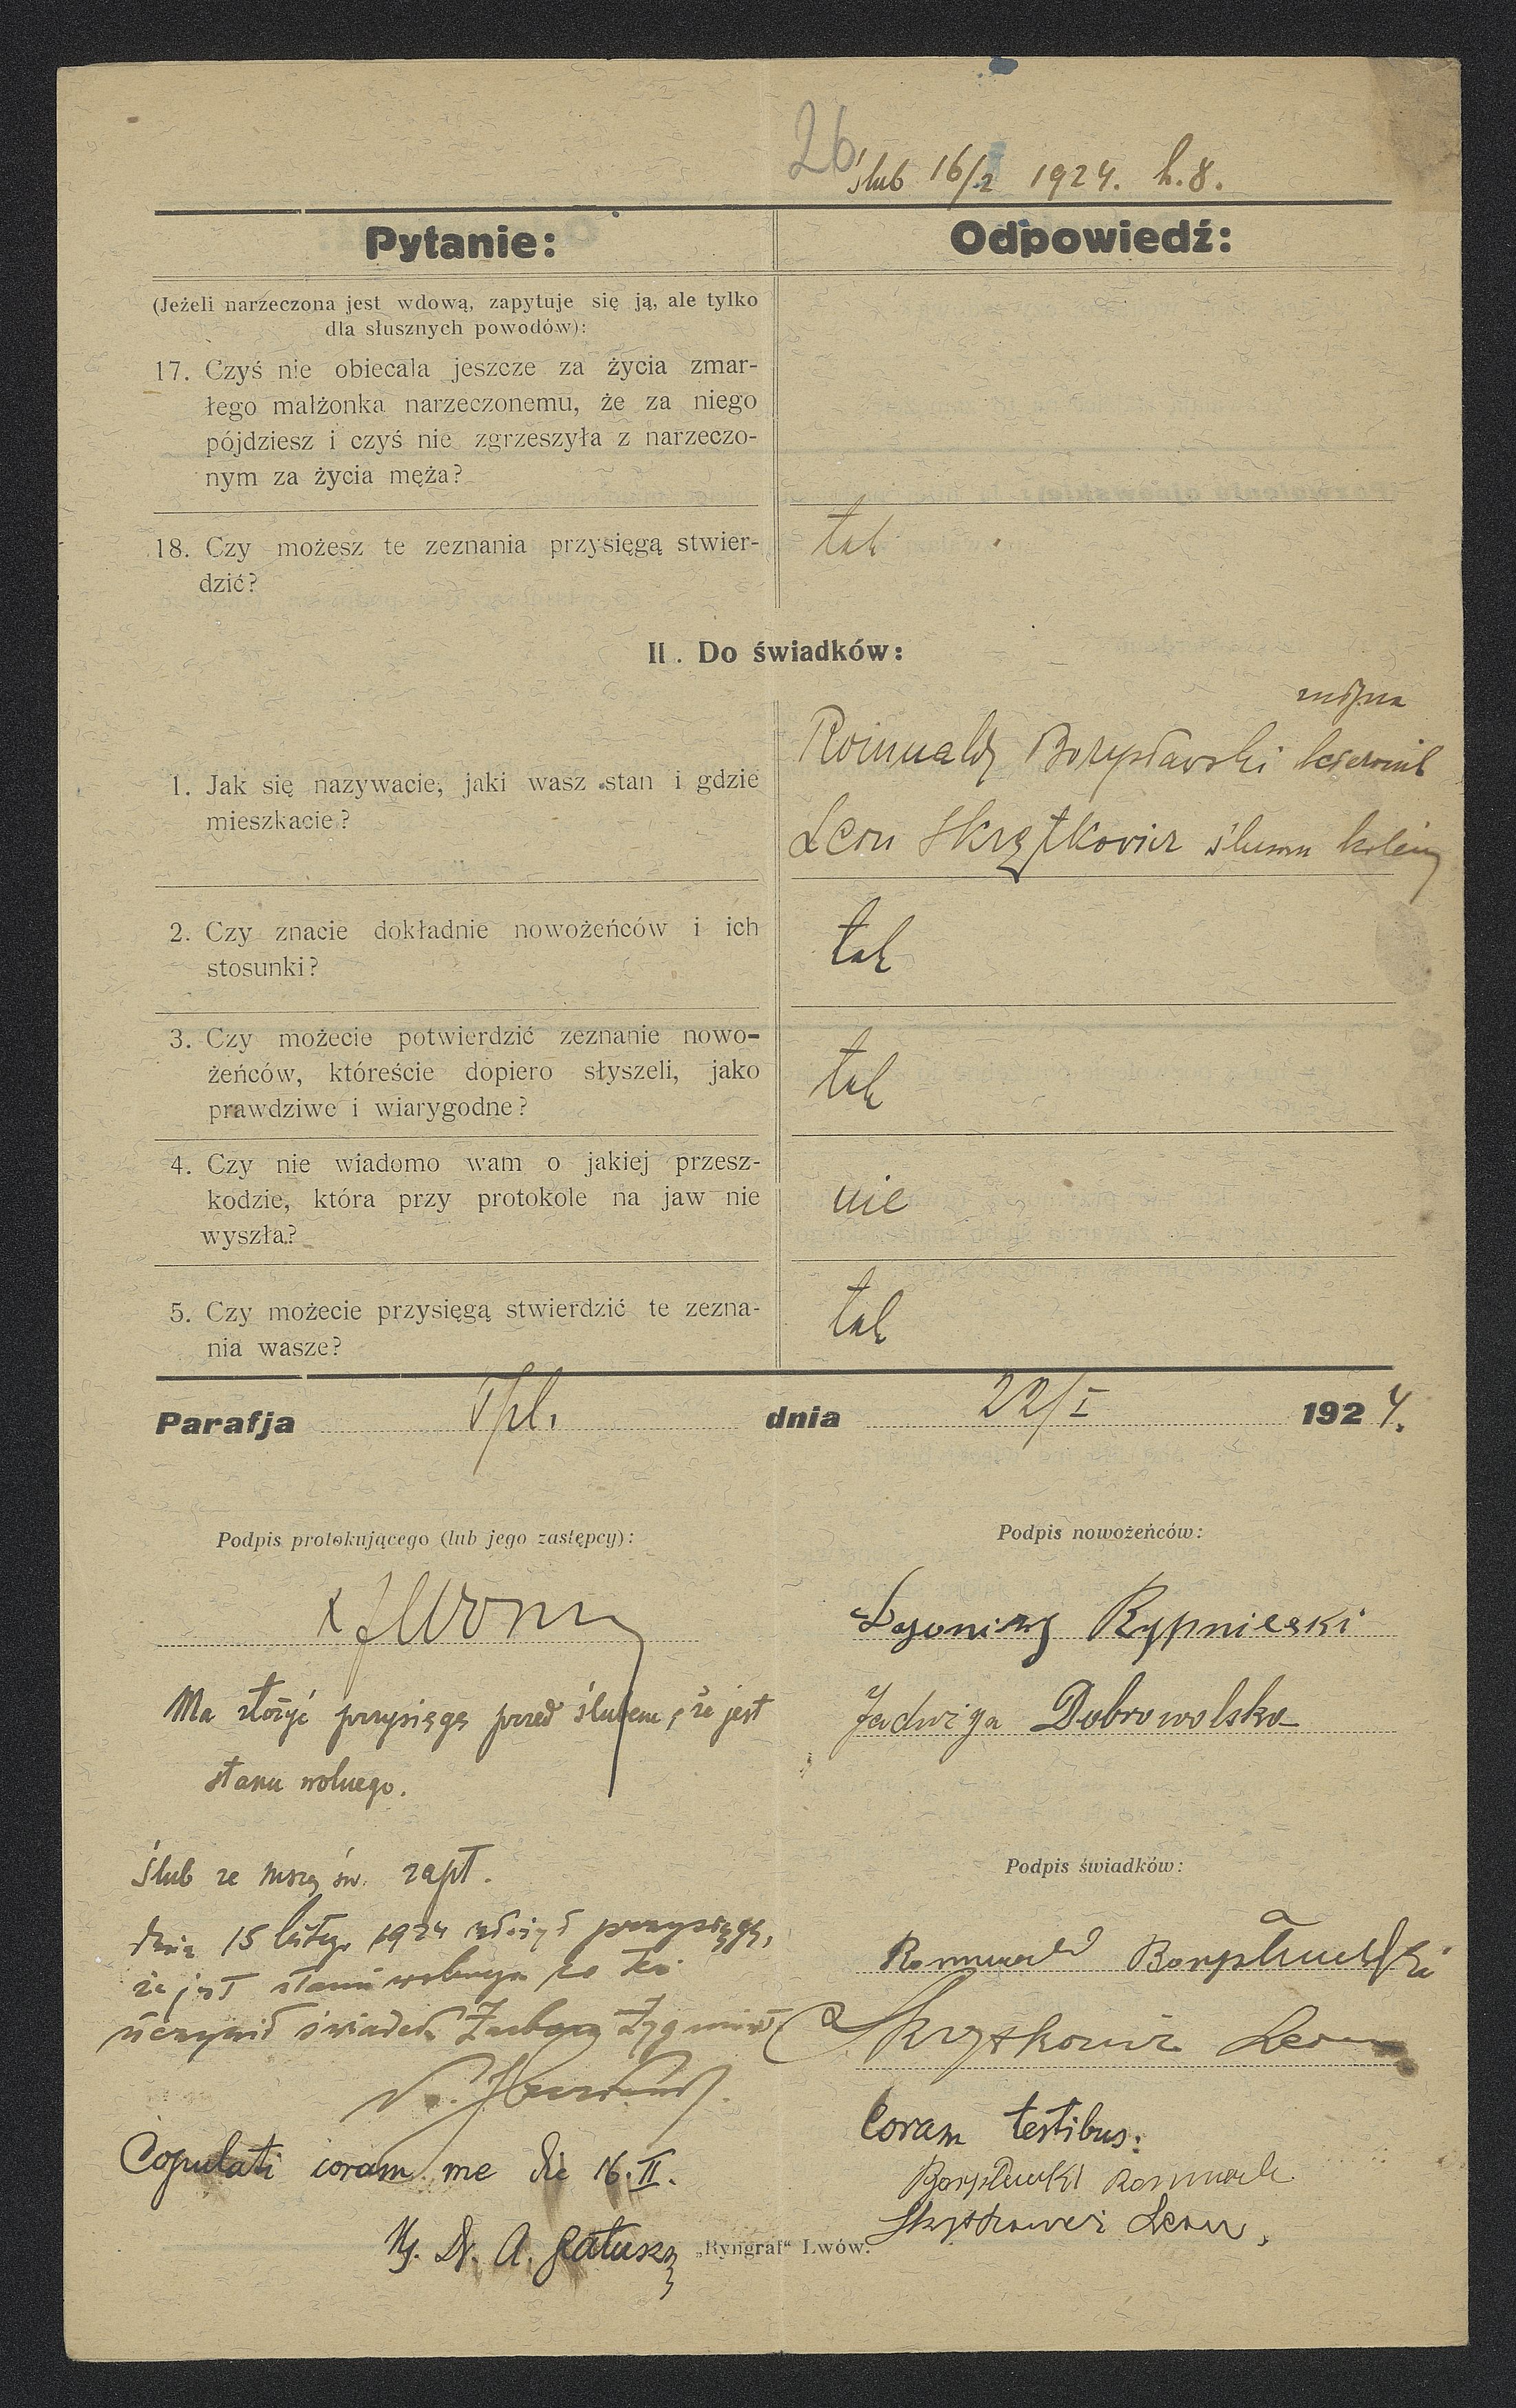 26
Ślub 16/2 1924. h. 8.
Pytanie:
Odpowiedź:
(Jeżeli narzeczona jest wdową, zapytuje się ją, ale tylko
dla słusznych powodów):
17. Czyś nie obiecala jeszcze za życia zmar-
łego malżonka narzeczonemu, że za niego
pójdziesz i czyś nie zgrzeszyła z narzeczo-
nym za życia męża?
18. Czy możesz te zeznania przysięgą stwier-
dzić?
tak
II. Do świadków:
1. Jak się nazywacie, jaki wasz stan i gdzie
mieszkacie?
Romuald Borysławski
Leon Skrzętkovicz
2. Czy znacie dokładnie nowożeńców i ich
stosunki?
tak
3. Czy możecie potwierdzić zeznanie nowo-
żeńców, któreście dopiero słyszeli, jako
prawdziwe i wiarygodne?
tak
4. Czy nie wiadomo wam o jakiej przesz-
kodzie, która przy protokole na jaw nie
wyszła?
nie
5. Czy możecie przysięgą stwierdzić te zezna-
nia wasze?
tak
Parafja dnia 22/I 1924.
Podpis protokującego (lub jego zastępcy):
Podpis nowożeńców:
Rypnieski
Jadwiga Dobrowolska
Ma złożyć przysięgę przed ślubem, że jest
stanu wolnego.
Ślub ze mszą św. zapł.
Podpis świadków:
dnia 15 lutego 1924 złożył przysięgę,
że jest stanu wolnego co też
uczynił świadek
Romuald
Leon
Copulati coram me die 16. II.
Coram testibus:
X. Dr. A. Gałuszka
Romuald
Leon
„Ryngraf“ Lwów.